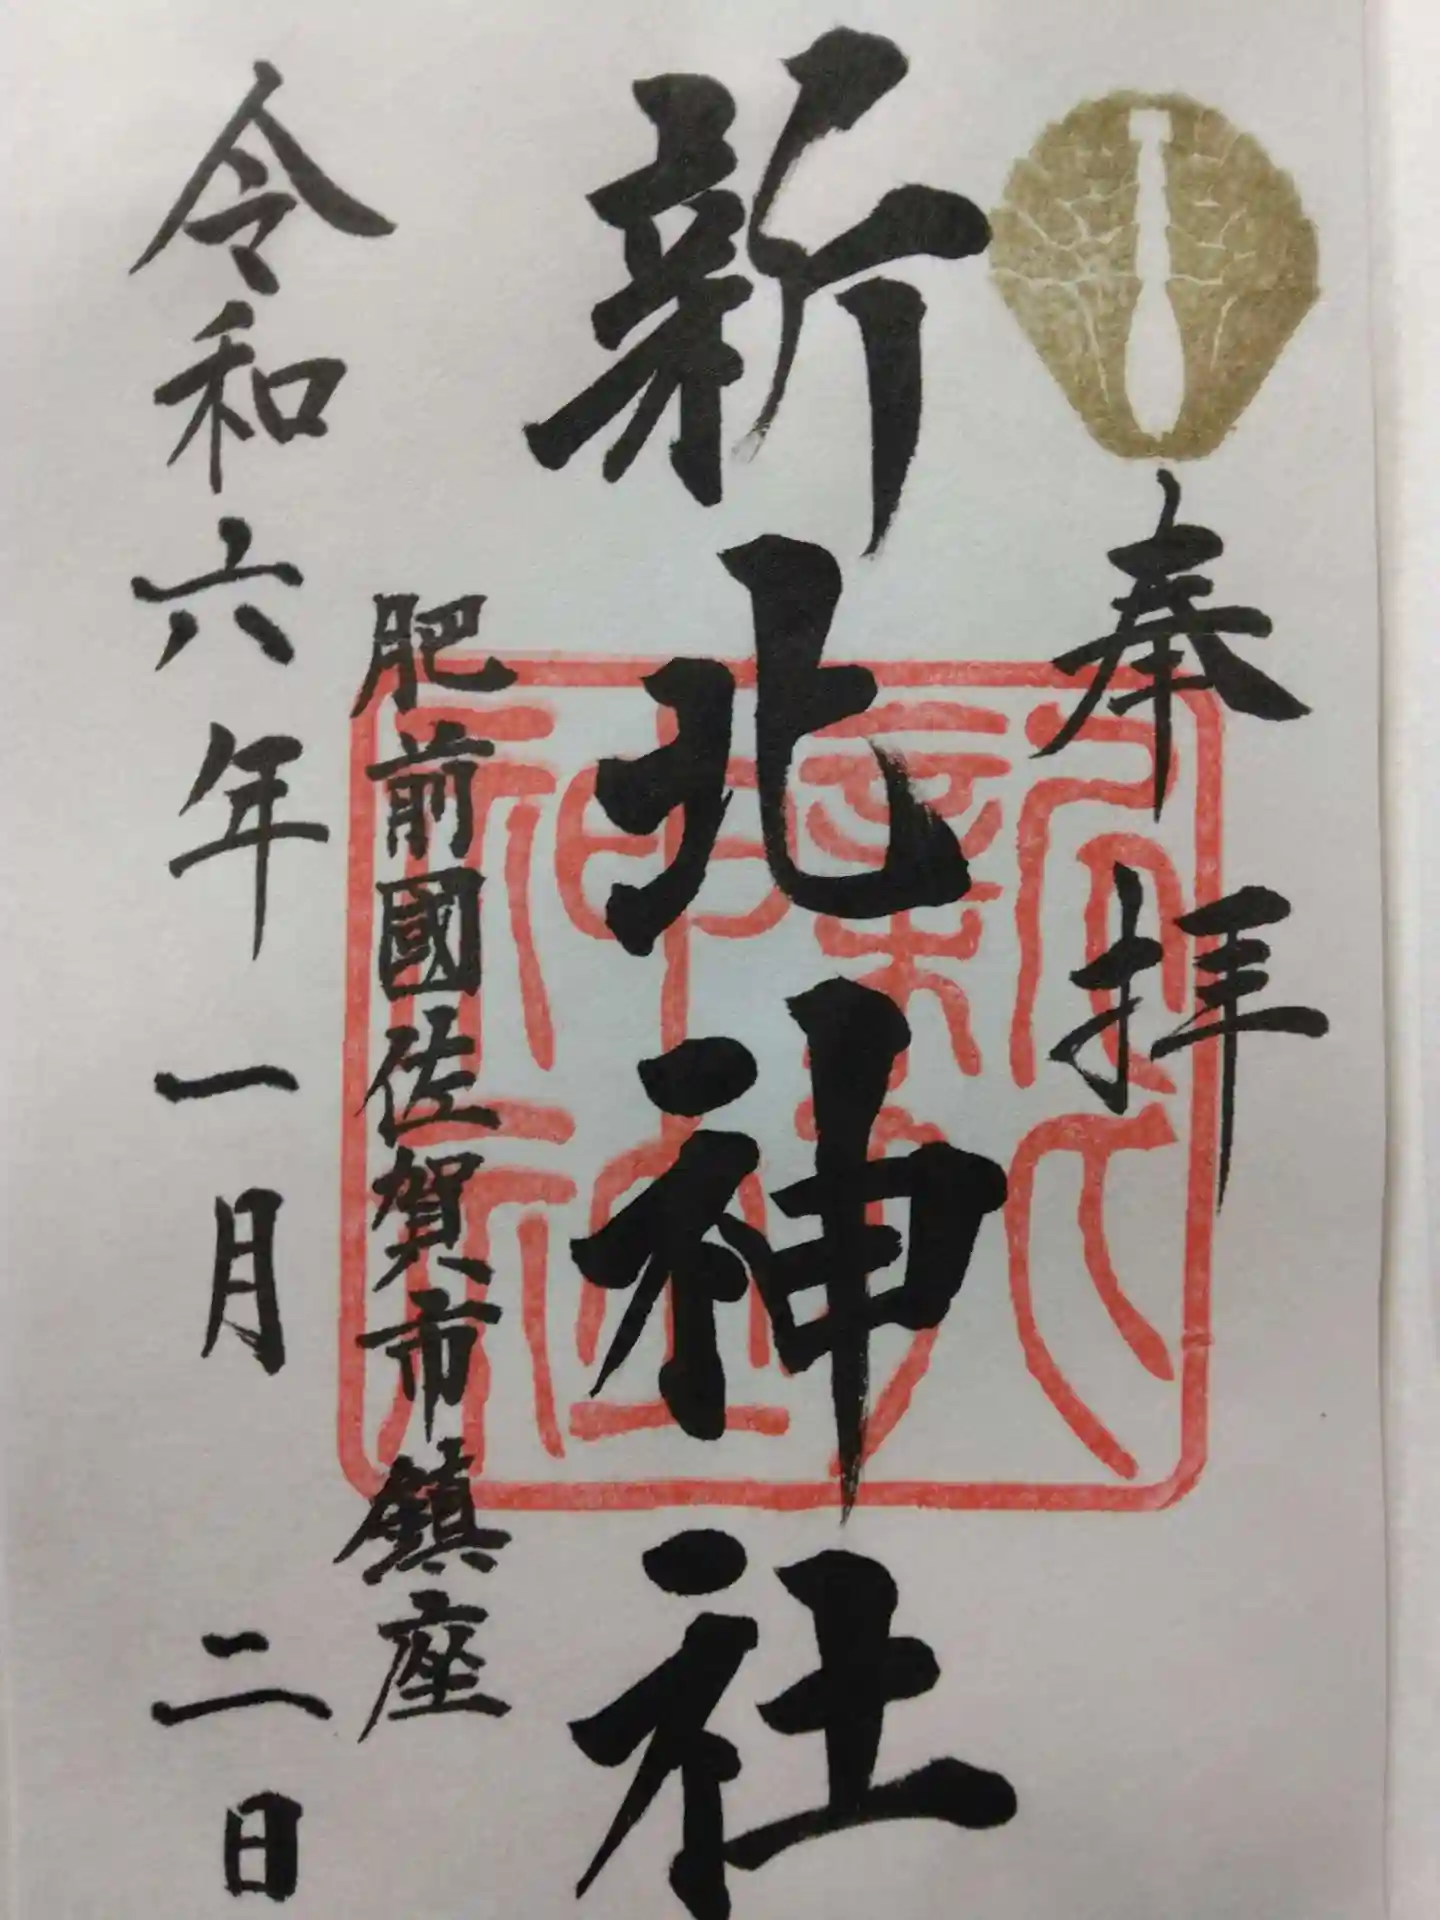 奉拝
新北神社
新北神社
肥前國佐賀市鎮座
令和六年一月二日